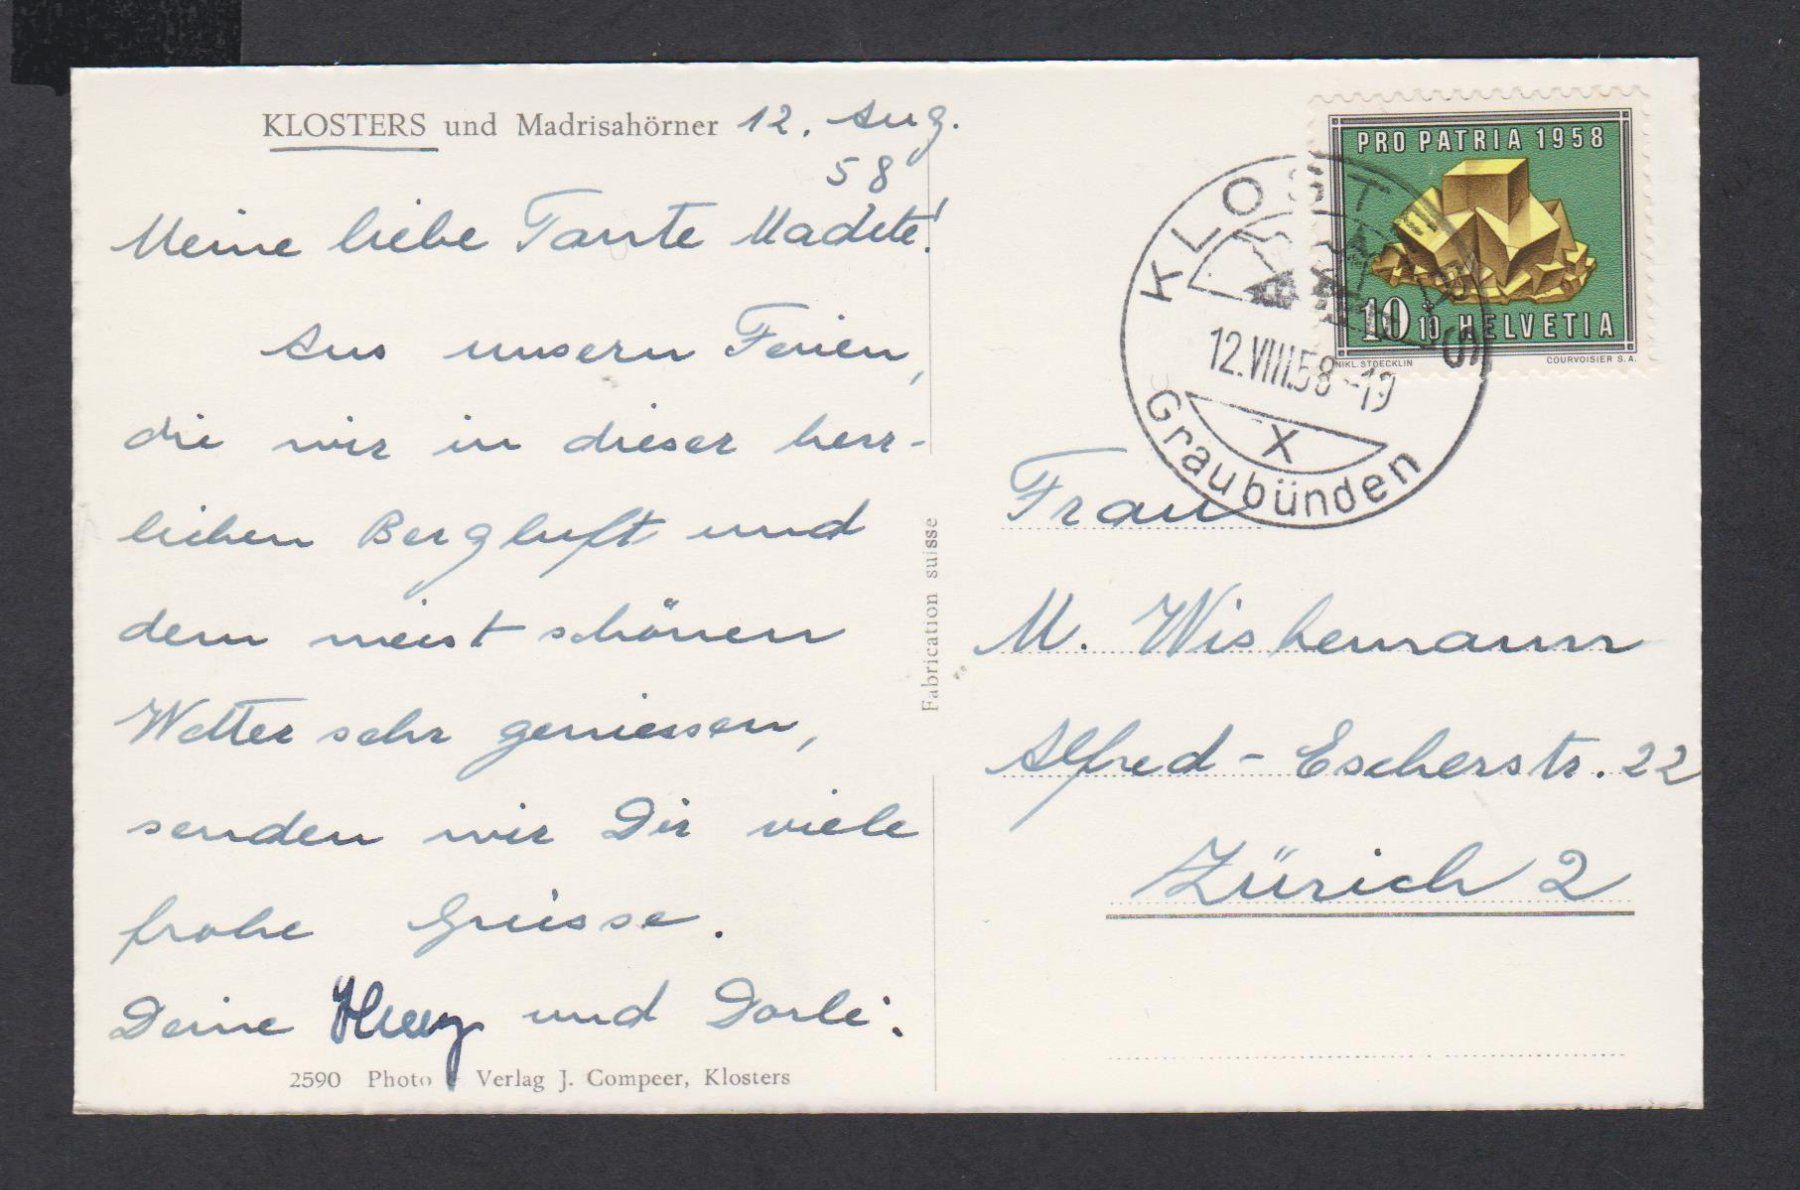 KLOSTERS und Madrisahörner 12. Aug.
58
Meine liebe Tante Madete!
Aus unsern Ferien,
die wir in dieser herr-
lichen Bergluft und
dem meist schönen
Wetter sehr geniessen,
senden wir Dir viele
frohe Grüsse.
Deine und Dorli.
2590 Photo - Verlag J. Compeer, Klosters
Fabrication suisse
PRO PATRIA 1958
10 10 HELVETIA
NIKL. STOECKLIN COURVOISIER S.A.
KLOSTERS
12.VIII.58-19
X
Graubünden
Frau
M. Wiskemann
Alfred-Escherstr. 22
Zürich 2